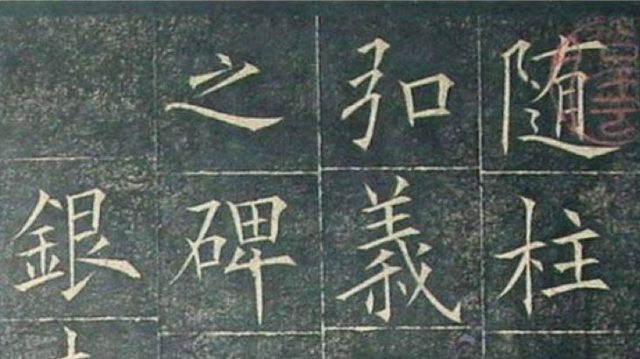 随柱
弘義
之碑
銀